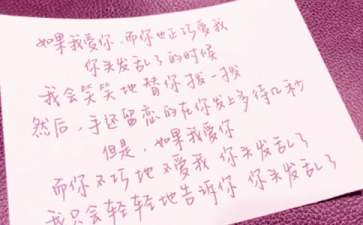 如果我爱你,而你也正巧爱我
你头发乱了的时候
我会笑笑地替你拨一拨
然后,手还留恋的在你发上多待几秒
但是,如果我爱你
而你不巧地不爱我 你头发乱了
我只会轻轻地告诉你 你头发乱了